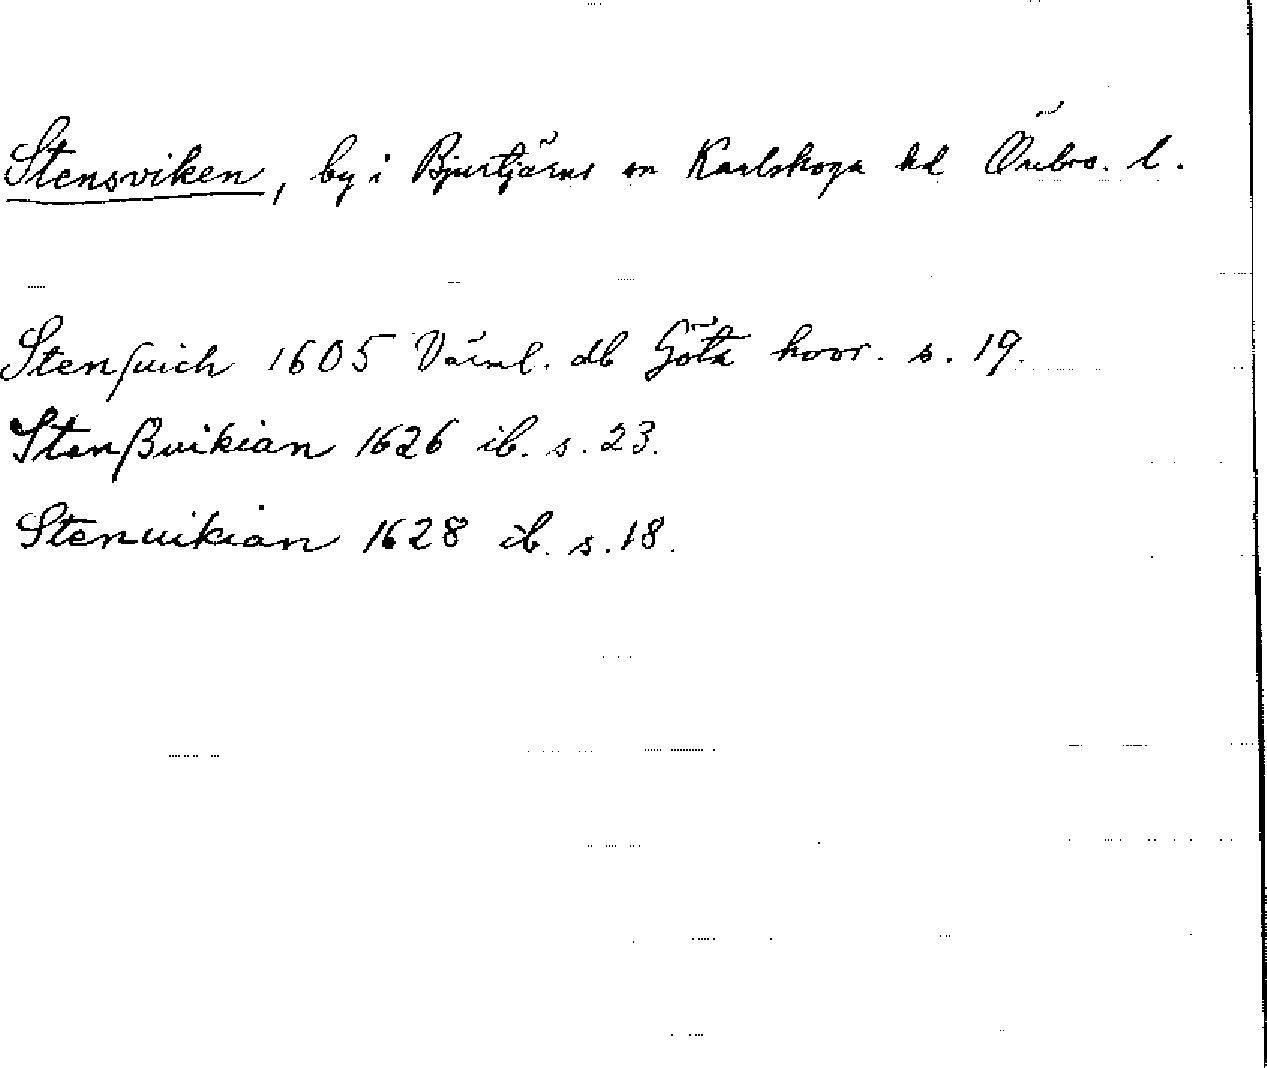 Stensviken, by i Bjurtjärns sn Karlskoga hd Örebro. l.
Stenſuich 1605 Värml. db Göta hovr. s. 19.
Stenßuikian 1626 ib. s. 23.
Stenuikian 1628 ib. s. 18.